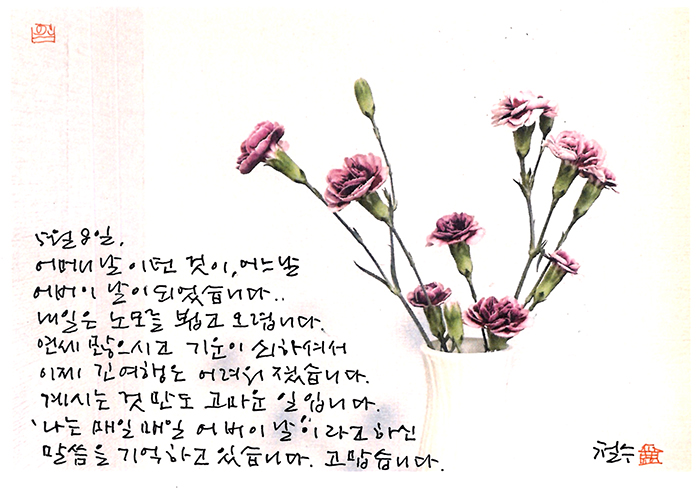 5월 8일.
어머니 날이던 것이, 어느날
어버이 날이 되었습니다..
내일은 노모를 뵙고 오렵니다.
연세 많으시고 기운이 쇠하셔서
이제 긴 여행은 어려워 졌습니다.
계시는 것 만도 고마운 일 입니다.
'나는 매일매일 어버이날'이라고 하신
말씀을 기억하고 있습니다. 고맙습니다.
철수